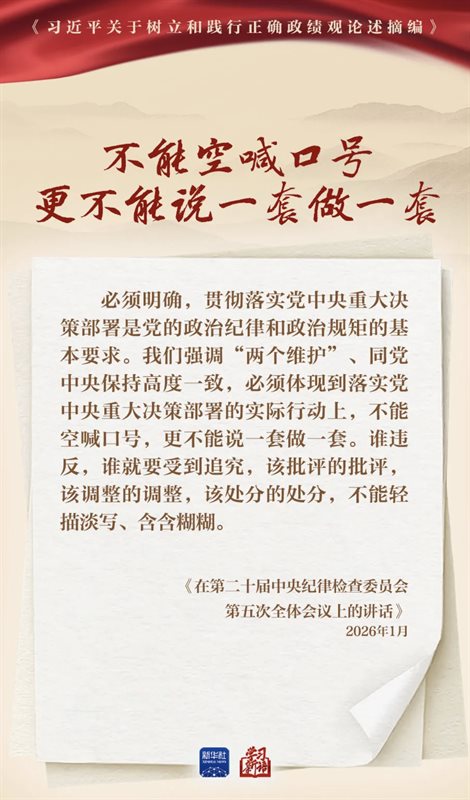 《习近平关于树立和践行正确政绩观论述摘编》
不能空喊口号
更不能说一套做一套
必须明确，贯彻落实党中央重大决
策部署是党的政治纪律和政治规矩的基
本要求。我们强调“两个维护”、同党
中央保持高度一致，必须体现到落实党
中央重大决策部署的实际行动上，不能
空喊口号，更不能说一套做一套。谁违
反，谁就要受到追究，该批评的批评，
该调整的调整，该处分的处分，不能轻
描淡写、含含糊糊。
《在第二十届中央纪律检查委员会
第五次全体会议上的讲话》
2026年1月
新华社
XINHUA NEWS
学习
新语